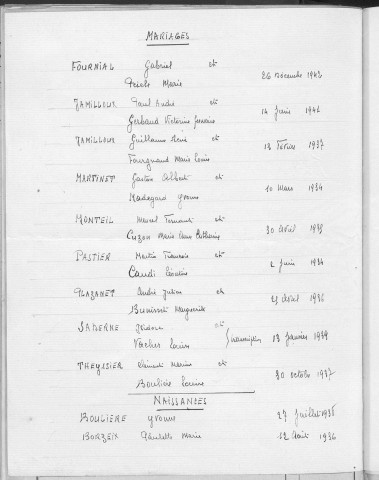 MARIAGES
FOURNIAL Gabriel et
Marie 26 Décembre 1942
JAMILLOUX Paul André et
Gerbaud Victorine 14 Juin 1941
JAMILLOUX Guillaume René et
Fourgnaud Marie Louise 13 Février 1937
MARTINET Gaston Albert et
Madegard Yvonne 10 Mars 1934
MONTEIL Marcel Fernand et
Cuzon Marie Catherine 30 Avril 1938
PASTIER Martin François et
Caudi 2 Juin 1934
PLAZANET André Julien et
Marguerite 23 Avril 1936
SADERNE et
Vacher Louise 13 Janvier 1939
THEYSSIER et
Boulière 30 Octobre 1937
NAISSANCES
BOULIERE Yvonne 27 Juillet 1938
BORZEIX Marie 12 Août 1936